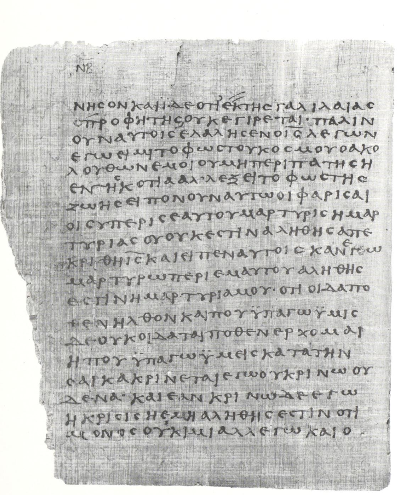 ΝΒ
ΝΗϹΟΝ ΚΑΙ ΙΔΕ ΟΤΙ ΕΚ ΤΗϹ ΓΑΛΙΛΑΙΑϹ
Ο ΠΡΟΦΗΤΗϹ ΟΥΚ ΕΓΙΡΕΤΑΙ· ΠΑΛΙΝ
ΟΥΝ ΑΥΤΟΙϹ ΕΛΑΛΗϹΕΝ Ο ΙϹ ΛΕΓΩΝ
ΕΓΩ ΕΙΜΙ ΤΟ ΦΩϹ ΤΟΥ ΚΟϹΜΟΥ Ο ΑΚΟ
ΛΟΥΘΩΝ ΕΜΟΙ ΟΥ ΜΗ ΠΕΡΙΠΑΤΗϹΗ
ΕΝ ΤΗ ϹΚΟΤΙΑ ΑΛΛ ΕΞΕΙ ΤΟ ΦΩϹ ΤΗϹ
ΖΩΗϹ ΕΙΠΟΝ ΟΥΝ ΑΥΤΩ ΟΙ ΦΑΡΙϹΑΙ
ΟΙ ϹΥ ΠΕΡΙ ϹΕΑΥΤΟΥ ΜΑΡΤΥΡΙϹ Η ΜΑΡ
ΤΥΡΙΑ ϹΟΥ ΟΥΚ ΕϹΤΙΝ ΑΛΗΘΗϹ ΑΠΕ
ΚΡΙΘΗ ΙϹ ΚΑΙ ΕΙΠΕΝ ΑΥΤΟΙϹ ΚΑΝ ΕΓΩ
ΜΑΡΤΥΡΩ ΠΕΡΙ ΕΜΑΥΤΟΥ ΑΛΗΘΗϹ
ΕϹΤΙΝ Η ΜΑΡΤΥΡΙΑ ΜΟΥ· ΟΤΙ ΟΙΔΑ ΠΟ
ΘΕΝ ΗΛΘΟΝ ΚΑΙ ΠΟΥ ΫΠΑΓΩ ΫΜΙϹ
ΔΕ ΟΥΚ ΟΙΔΑΤΑΙ ΠΟΘΕΝ ΕΡΧΟΜΑΙ
Η ΠΟΥ ΫΠΑΓΩ ΫΜΕΙϹ ΚΑΤΑ ΤΗΝ
ΚΡΙΝΕΤΑΙ ΕΓΩ ΟΥ ΚΡΙΝΩ ΟΥ
ΔΕΝΑ· ΚΑΙ ΕΑΝ ΚΡΙΝΩ ΔΕ ΕΓΩ
Η ΚΡΙϹΙϹ Η ΕΜΗ ΑΛΗΘΗϹ ΕϹΤΙΝ ΟΤΙ
ΜΟΝΟϹ ΟΥΚ ΙΜΙ ΑΛΛ ΕΓΩ ΚΑΙ Ο